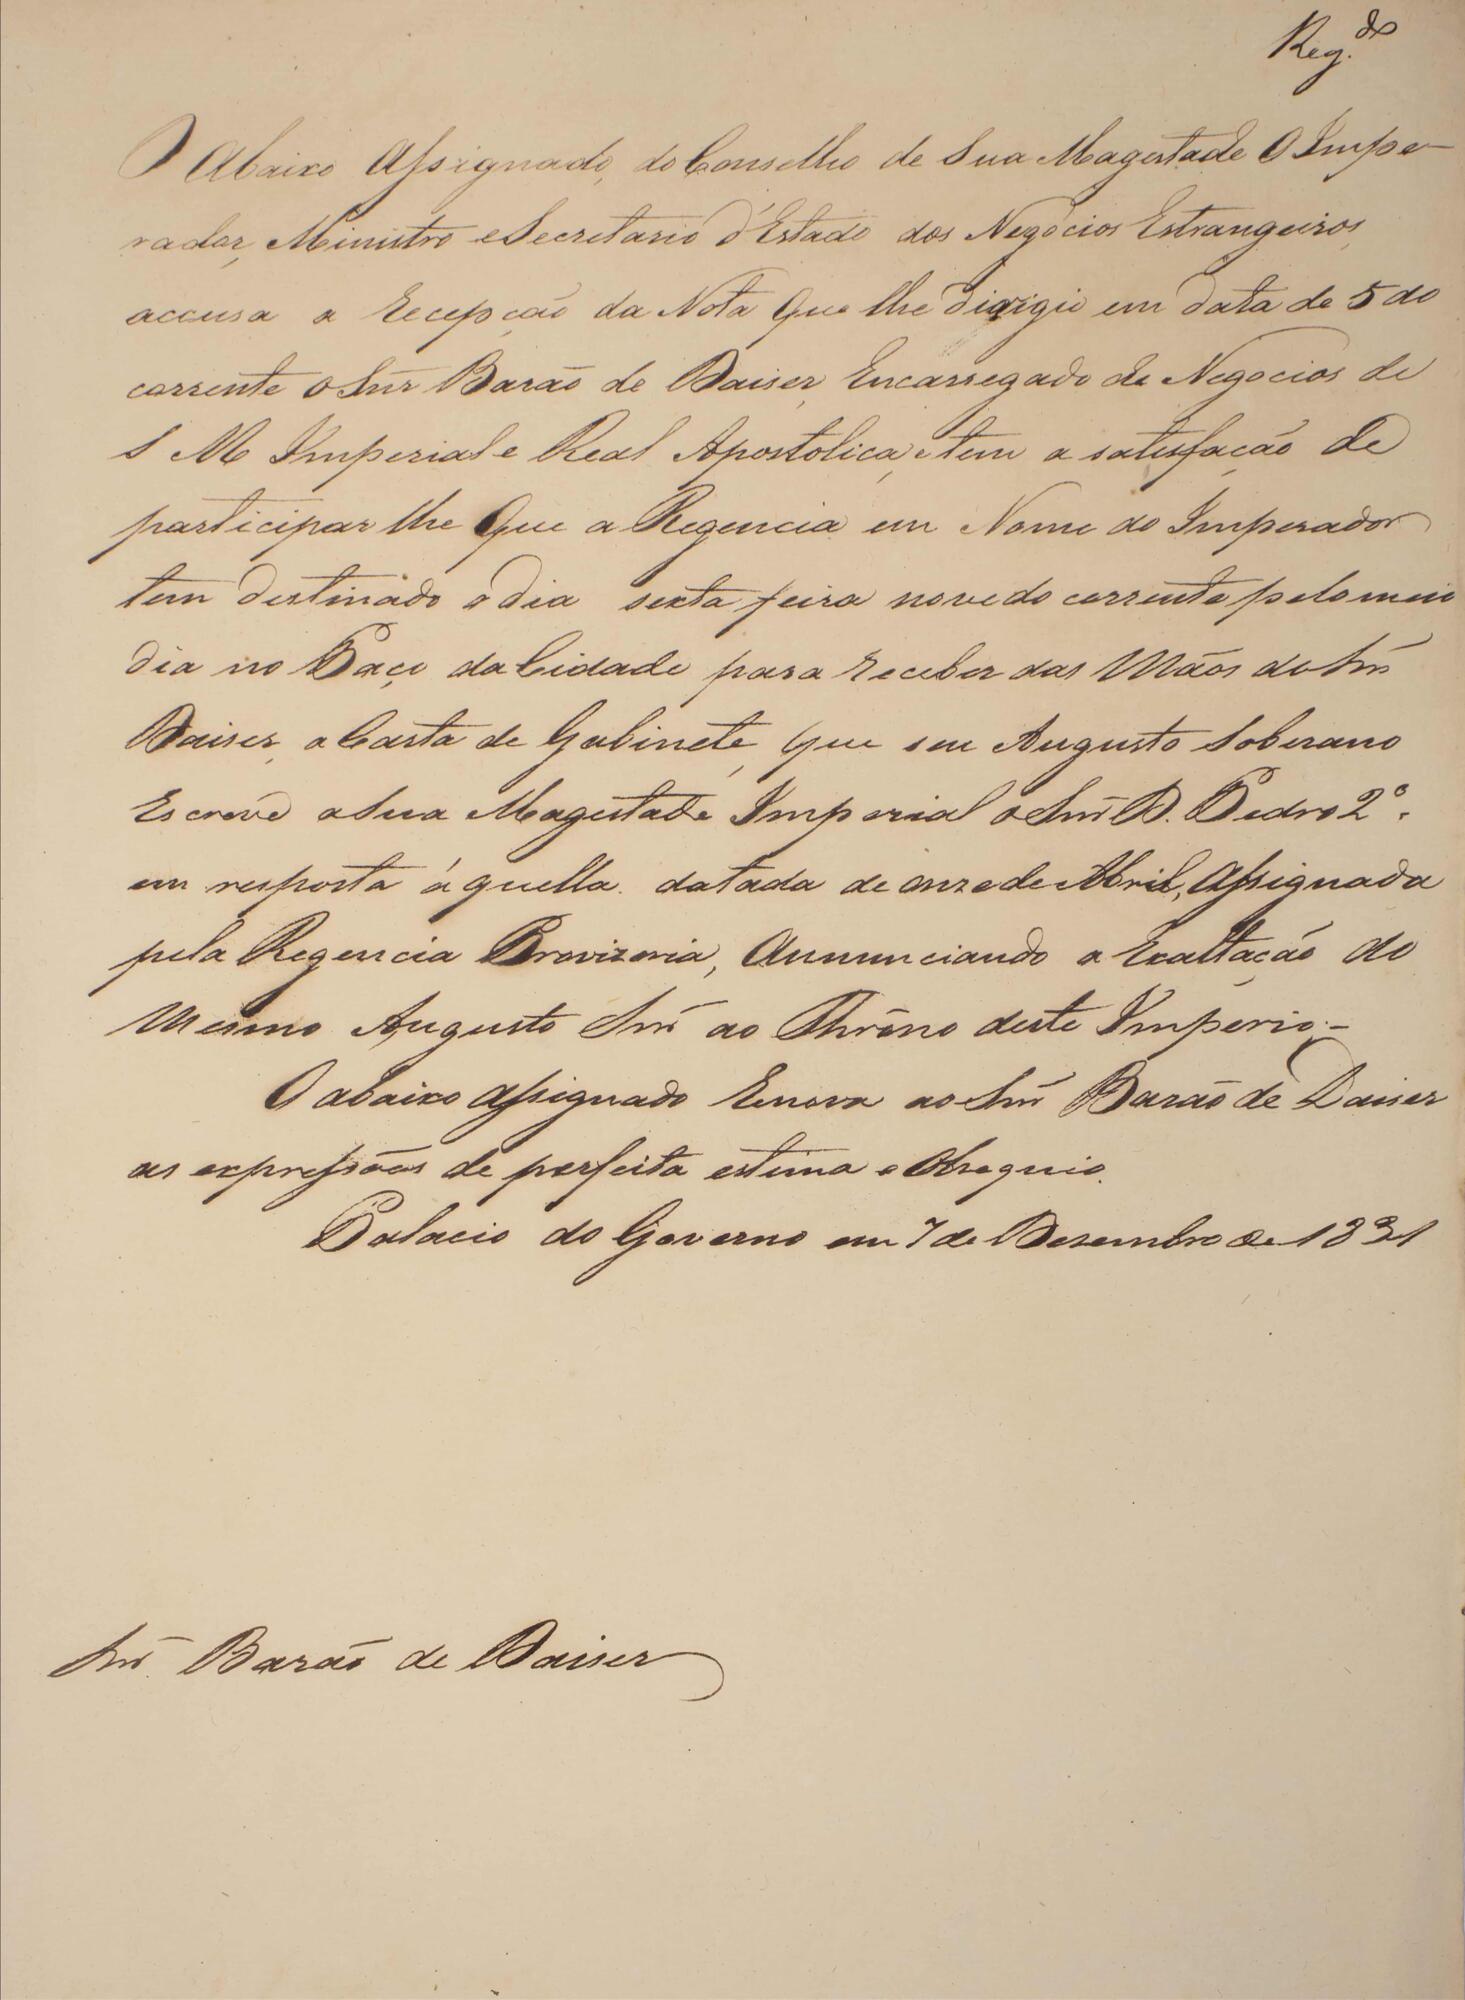 Reg.do
O Abaixo Assignado, do Conselho de Sua Magestade O Impe-
rador, Ministro e Secretario d'Estado dos Negocios Estrangeiros,
accusa a recepção da Nota que lhe dirigio em data de 5 do
corrente o Snr Barão de Daiser, Encarregado de Negocios de
S M Imperial e Real Apostolica, e tem a satisfação de
participar lhe que a Regencia em Nome do Imperador
tem destinado o dia sexta feira nove do corrente pelo meio
dia no Paço da Cidade para receber das Mãos do Snr
Daiser, a Carta de Gabinete, que seu Augusto Soberano
Escreve a Sua Magestade Imperial o Snr D. Pedro 2º.
em resposta áquella datada de onze de Abril, Assignada
pela Regencia Provizoria, Annunciando a Exaltação do
Mesmo Augusto Snr ao Throno deste Imperio.-
O abaixo assignado renova ao Snr Barão de Daiser
as expressões de perfeita estima e Obsequio.
Palacio do Governo em 7 de Dezembro de 1831
Snr. Barão de Daiser